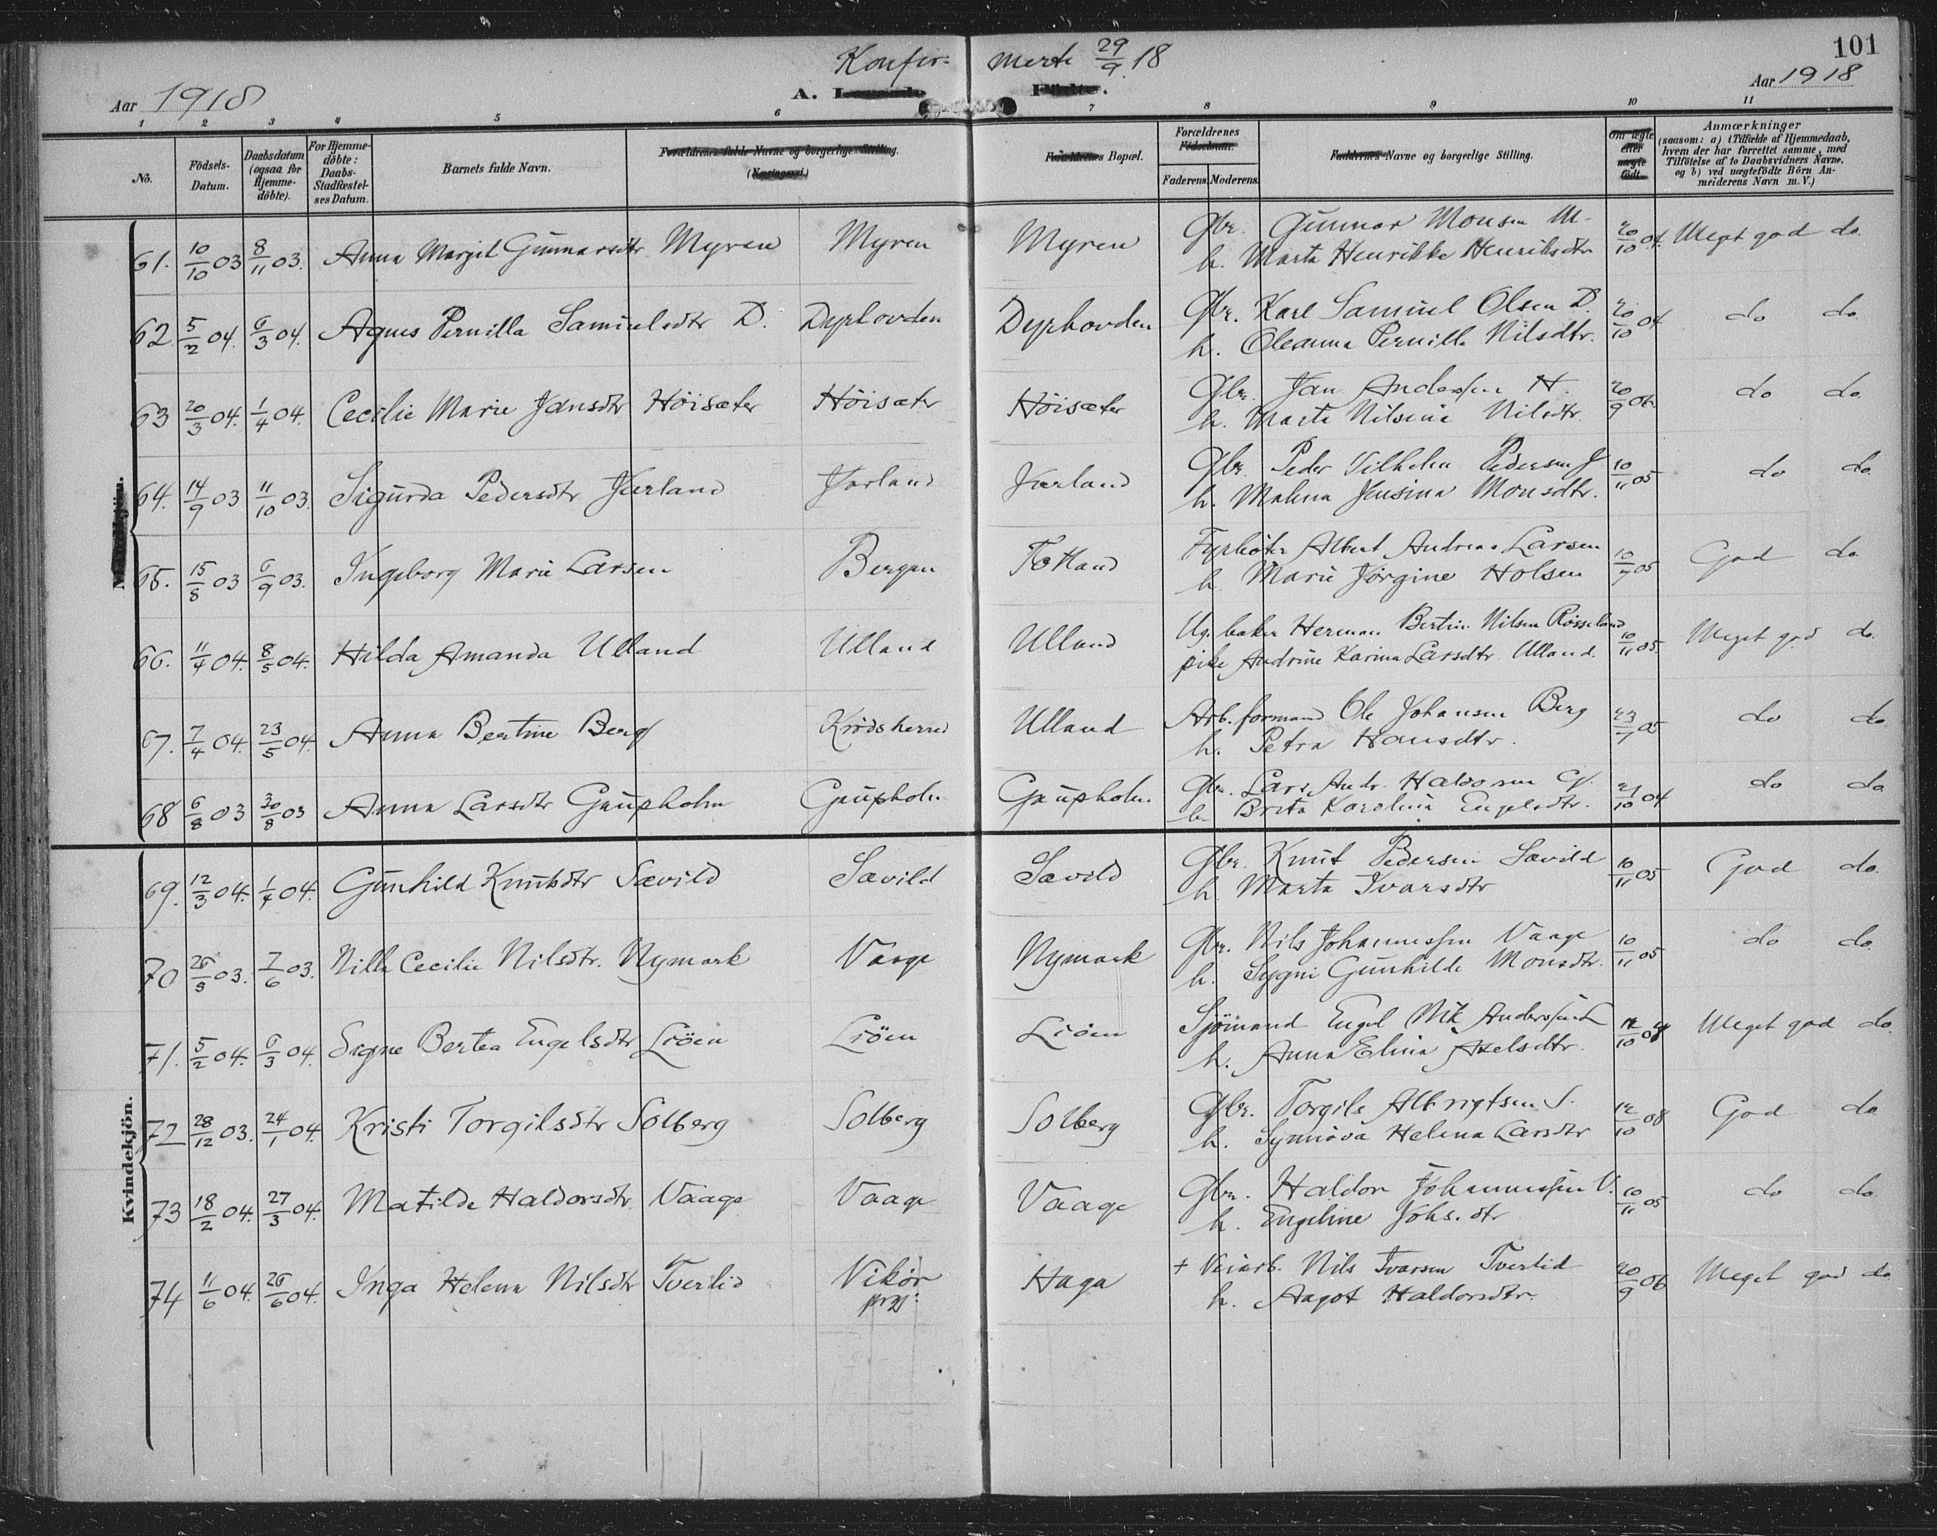 Konfir- merte 29/9 18
101
Aar 1918
A. Födte.
Aar 1918
1 2 3 4 5 6 7 8 9 10 11
No.
Födsels-Datum.
Daabsdatum (ogsaa for Hjemme-döbte).
For Hjemme-döbte: Daabs-Stadfæstel-ses Datum.
Barnets fulde Navn.
Forældrenes fulde Navne og borgerlige Stilling.
(Næringsvei.)
Forældrenes Bopæl.
Forældrenes Födselsaar.
Faderens. Moderens.
Faddernes Navne og borgerlige Stilling.
Om ægte eller uægte födt.
Anmærkninger
(saasom: a) i Tilfælde af Hjemmedaab, hvem der har forrettet samme, med Tilföielse af to Daabsvidners Navne, og b) ved uægtefödte Börn An-melderens Navn m. V.)
Kvindekjön.
61. 10/10 03 8/11 03. Anna Margit Gunnarsdtr Myren Myren Myren Gbr. Gunnar Monsen M- 20/10 04. Meget god do.
h. Marta Henrikke Henriksdtr
62 5/2 04. 6/3 04. Agnes Pernilla Samuelsdtr D. Dyrhovden Dyrhovden Gbr. Karl Samuel Olsen D. 20/10 04 do do.
h. Oleanna Pernilla Nilsdtr.
63 20/3 04. 1/4 04. Cecilie Marie Jansdtr Höisæter Höisætr Höisæter Gbr. Jan Andersen H. 20/9 06. do do.
h. Marta Nilsina Nilsdtr.
64. 14/9 03 11/10 03. Sigurda Pedersdtr Jarland Jarland Jarland Gbr. Peder Vilhelm Pedersen J 10/11 05 do do.
h. Malena Jensina Monsdtr.
65. 15/8 03 6/9 03. Ingeborg Marie Larsen Bergen Totland Fyrböter Albert Andreas Larsen 10/7 05 God do.
h. Marie Jörgine Holsen
66. 11/4 04. 8/5 04. Hilda Amanda Ulland Ulland Ulland Ug. baker Herman Bertin Nilsen Rösseland 10/11 05. Meget god do.
pike Andrine Karina Larsdtr. Ulland.
67. 7/4 04. 23/5 04. Anna Bertine Berg Krödsherred Ulland Arb.formand Ole Johansen Berg 23/7 05 do do
h. Petra Hansdtr.
68 6/8 03 30/8 03 Anna Larsdtr Gaupholm Gaupholm Gaupholm. Gbr. Lars Andr. Haldorsen G. 21/10 04 do do
h. Brita Karolina Engelsdtr.
69. 12/3 04. 1/4 04. Gunhild Knutsdtr Sævild Sævild Sævild Gbr. Knut Pedersen Sævild 10/11 05 God do.
h. Marta Ivarsdtr
70 26/5 03. 7/6 03. Nilla Cecilie Nilsdtr. Nymark Vaage Nymark Gbr. Nils Johannessen Vaage 10/11 05 do do.
h. Sygni Gunhilde Monsdtr.
71. 5/2 04. 6/3 04. Signe Bertea Engelsdtr Liöen Liöen Liöen Sjömand Engel Mk Anderssen L 12/10 08 Meget god do.
h. Anna Elina Axelsdtr.
72 28/12 03. 24/1 04. Kristi Torgilsdtr Solberg Solberg Solberg Gbr. Torgils Albrigtsen S. 12/10 08 God do
h. Synnöva Helena Larsdtr
73 18/2 04. 27/3 04. Matilde Haldorsdtr. Vaage Vaage Vaage Gbr. Haldor Johannessen V. 10/11 05 do do.
h. Engeline Johs.dtr
74 11/6 04. 26/6 04. Inga Helena Nilsdtr Tvertid Vikör Haga + Veiarb. Nils Ivarsen Tvertid 20/9 06 Meget god do
prgj: h. Aagot Haldorsdtr.